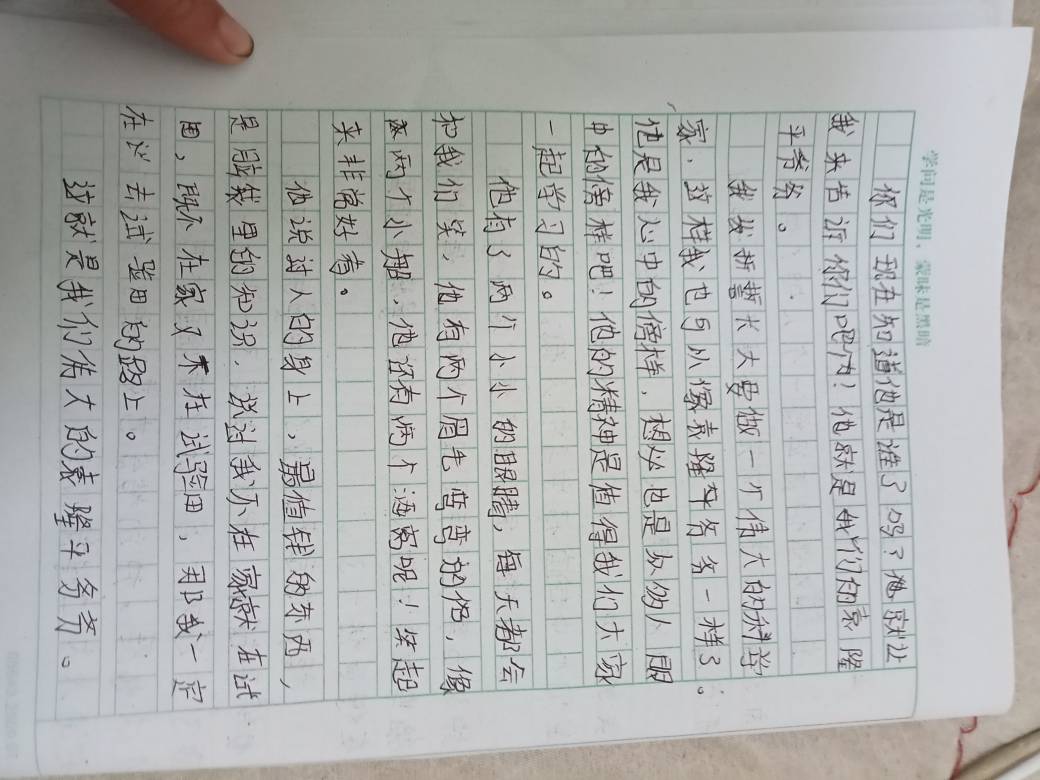 学问是光明，蒙昧是黑暗
你们现在知道他是谁了吗？那就让
我来告诉你们吧！他就是我们的袁隆
平爷爷。
我发析誓长大要做一个伟大的科学
家，这样我也可以像袁隆平爷爷一样了。
他是我心中的倍样，想必也是众多人眼
中的倍样吧！他的精神是值得我们大家
一起学习的。
他有了两个小小的眼睛，每天都会
和我们笑，他有两个眉毛弯弯的他，像
两个小船，他还有两个酒窝呢！笑起
来非常好看。
他说过人的身上，最值钱的东西，
是脑袋里的知识，说过我不在家就在试
田，既不在家又不在试验田，那我一定
在 去试验田的路上。
这就是我们伟大的袁隆平爷爷。